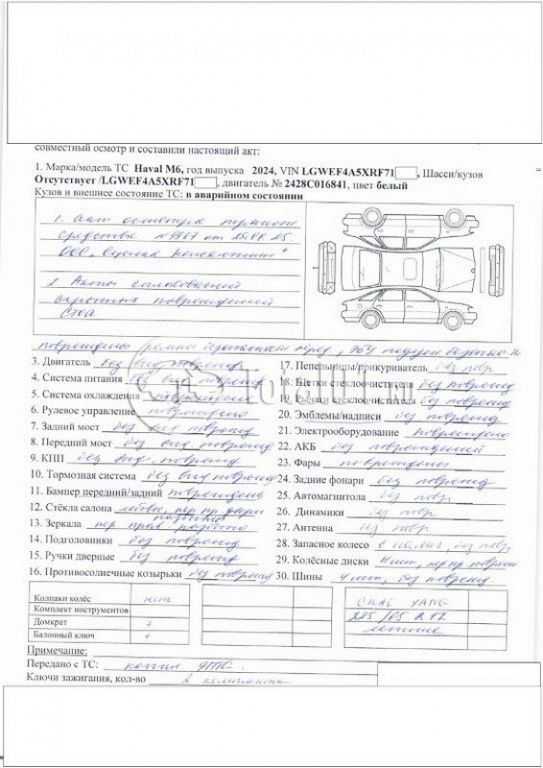 совместный осмотр и составили настоящий акт:
1. Марка/модель ТС Haval M6, год выпуска 2024, VIN LGWEF4A5XRF71 , Шасси/кузов
Отсутствует /LGWEF4A5XRF71 , двигатель № 2428C016841, цвет белый
Кузов и внешнее состояние ТС: в аварийном состоянии
1. Акт осмотра
средства № от
ООО
2. Акты согласований
скрытых повреждений
СТОА
повреждены ремни безопасности перед,
3. Двигатель без вид. поврежд
4. Система питания без вид поврежд
5. Система охлаждения повреждена
6. Рулевое управление повреждено
7. Задний мост без вид поврежд
8. Передний мост без вид поврежд
9. КПП без вид. поврежд
10. Тормозная система без вид поврежд
11. Бампер передний/задний повреждены
12. Стёкла салона
13. Зеркала пер прав. разбито
14. Подголовники без поврежд
15. Ручки дверные без поврежд
16. Противосолнечные козырьки без поврежд
17. Пепельницы/прикуриватель без повр.
18. Щетки стеклоочистителя без поврежд
19. Рычаги стеклоочистителя без поврежд
20. Эмблемы/надписи без поврежд
21. Электрооборудование повреждено
22. АКБ без повреждений
23. Фары повреждены
24. Задние фонари без поврежд
25. Автомагнитола без повр.
26. Динамики без повр.
27. Антенна без повр.
28. Запасное колесо в налич, без повр
29. Колёсные диски 4 шт,
30. Шины 4 шт, без поврежд.
Колпаки колёс нет
Комплект инструментов
Домкрат +
Балонный ключ +
CHAO YANG
225/65 R 17
летние
Примечание:
Передано с ТС: копия ЭПТС
Ключи зажигания, кол-во 2 комплекта